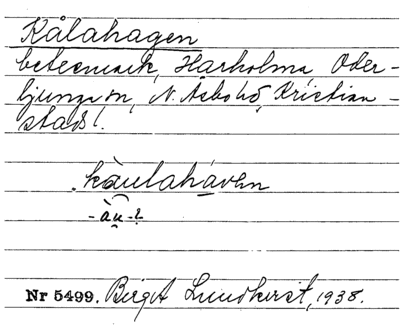 Kålahagen
betesmark, Harholma, Oder-
ljunga sn, N. Åsbo hd, Kristian-
stads l.
kàulaháven
-àu-?
Nr 5499. Birgit Lundkvist, 1938.